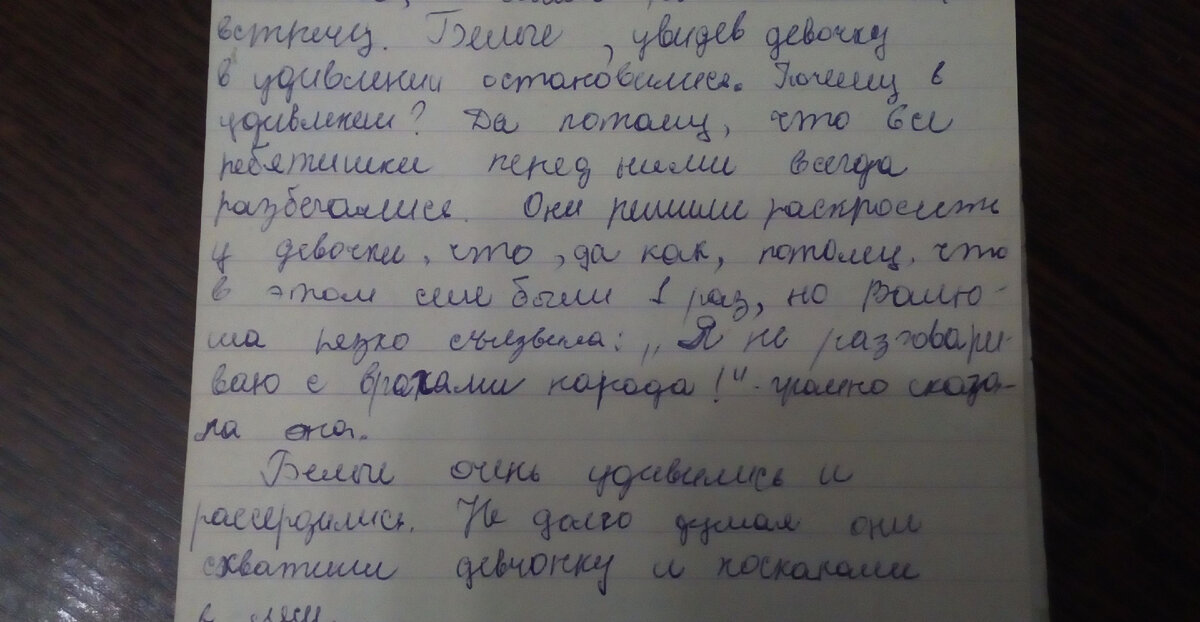 встречу. Белые, увидев девочку
в удивлении остановились. Почему в
удивлении? Да потому, что все
ребятишки перед ними всегда
разбегались. Они решили раскросить
у девочки, что, да как, потому, что
в этом селе были 1 раз, но Валю-
ша резко съязвила: „Я не разговари-
ваю с врагами народа!" - громко сказа-
ла она.
Белые очень удивились и
рассердились. Не долго думая они
схватили девчонку и поскакали
в